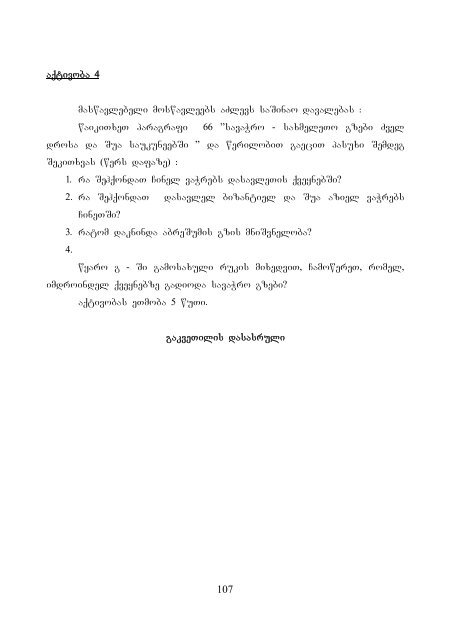 აქტივობა 4
მასწავლებელი მოსწავლეებს აძლევს საშინაო დავალებას :
წაიკითხეთ პარაგრაფი 66 ”სავაჭრო - სახმელეთო გზები ძველ
დროსა და შუა საუკუნეებში ” და წერილობით გაეცით პასუხი შემდეგ
შეკითხვას (წერს დაფაზე) :
1. რა შეჰქონდათ ჩინელ ვაჭრებს დასავლეთის ქვეყნებში?
2. რა შეჰქონდათ დასავლელ ბიზანტიელ და შუა აზიელ ვაჭრებს
ჩინეთში?
3. რატომ დაკნინდა აბრეშუმის გზის მნიშვნელობა?
4.
წყარო გ - ში გამოსახული რუკის მიხედვით, ჩამოწერეთ, რომელ,
იმდროინდელ ქვეყნებზე გადიოდა სავაჭრო გზები?
აქტივობას ეთმობა 5 წუთი.
გაკვეთილის დასასრული
107